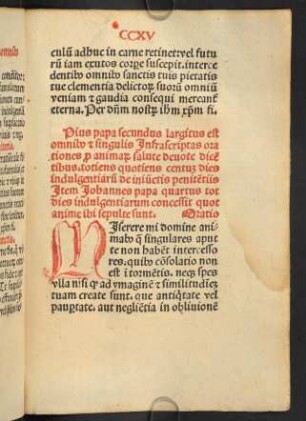 CCXV
culū adhuc in carne retinet vel futu
rū iam exutos corꝑe suscepit. interce
dentibꝰ omnibꝰ sanctis tuis pietatis
tue clementia delictoꝝ suoꝝ omniū
veniam ⁊ gaudia consequi mereant̉
eterna. Per dn̄m nostꝝ ihm xp̄m fi.
Pius papa secundus largitus est
omnibꝰ ⁊ singulis Infrascriptas ora
tiones ꝓ animaꝝ salute deuote dicē
tibus. totiens quotiens centuȝ dies
indulgentiarū de iniūctis penitētiis
Item Johannes papa quartus tot
dies indulgentiarum concessit quot
anime ibi sepulte sunt. Oratio
MIserere mi domine ani
mabꝰ q̄ singulares apud
te non habēt intercesso
res. quibꝰ cōsolatio non
est ī tormētis. neqꝫ spes
vlla nisi ꝙ ad ymaginē ⁊ similitudīeꝫ
tuam create sunt. que antiq̄tate vel
paupertate. aut negliētia in obliuionē